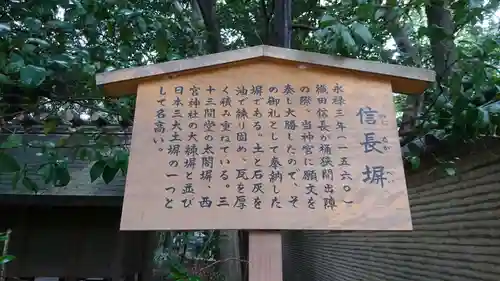 信長塀
のぶなが
べい
永禄三年(一五六〇)
織田信長が桶狭間出陣
の際、当神宮に願文を
奏し大勝したので、そ
の御礼として奉納した
塀である。土と石灰を
油で練り固め、瓦を厚
く積み重ねている。三
十三間堂の太閤塀、西
宮神社の大練塀と並び
日本三大土塀の一つと
して名高い。